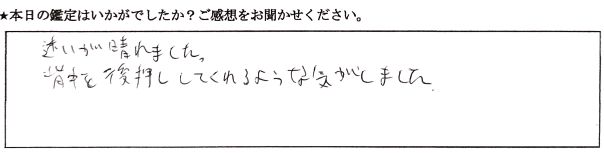 ★本日の鑑定はいかがでしたか？ご感想をお聞かせください。
迷いが晴れました。
背中を後押ししてくれるような気がしました